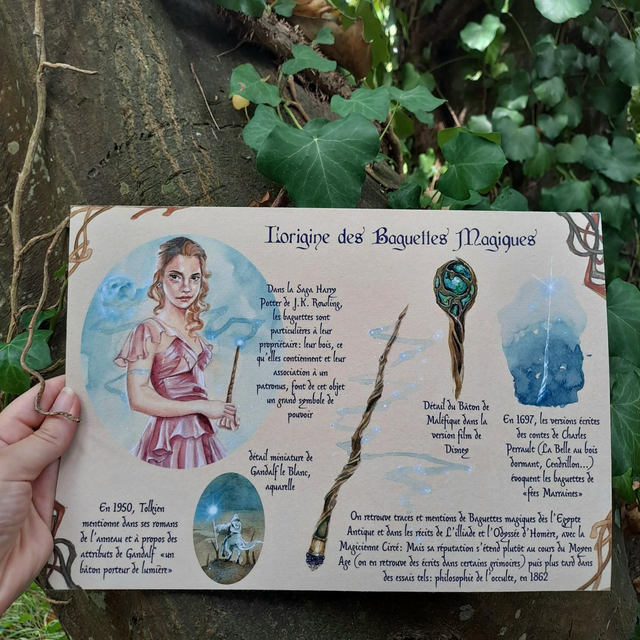 L'origine des Baguettes Magiques
Dans la Saga Harry
Potter de J.K. Rowling,
les baguettes sont
particulières à leur
propriétaire : leur bois, ce
qu'elles contiennent et leur
association à un
patronus, font de cet objet
un grand symbole de
pouvoir
Détail du Bâton de
Maléfique dans la
version film de
Disney
En 1697, les versions écrites
des contes de Charles
Perrault (La Belle au bois
dormant, Cendrillon...)
évoquent les baguettes de
«fées Marraines»
détail miniature de
Gandalf le Blanc,
aquarelle
En 1950, Tolkien
mentionne dans ses romans
de l'anneau et à propos des
attributs de Gandalf «un
bâton porteur de lumière»
On retrouve traces et mentions de Baguettes magiques dès l'Egypte
Antique et dans les récits de L'illiade et l'Odyssée d'Homère, avec la
Magicienne Circé: Mais sa réputation s'étend plutôt au cours du Moyen
Age (on en retrouve des écrits dans certains grimoires) puis plus tard dans
des essais tels: philosophie de l'occulte, en 1862